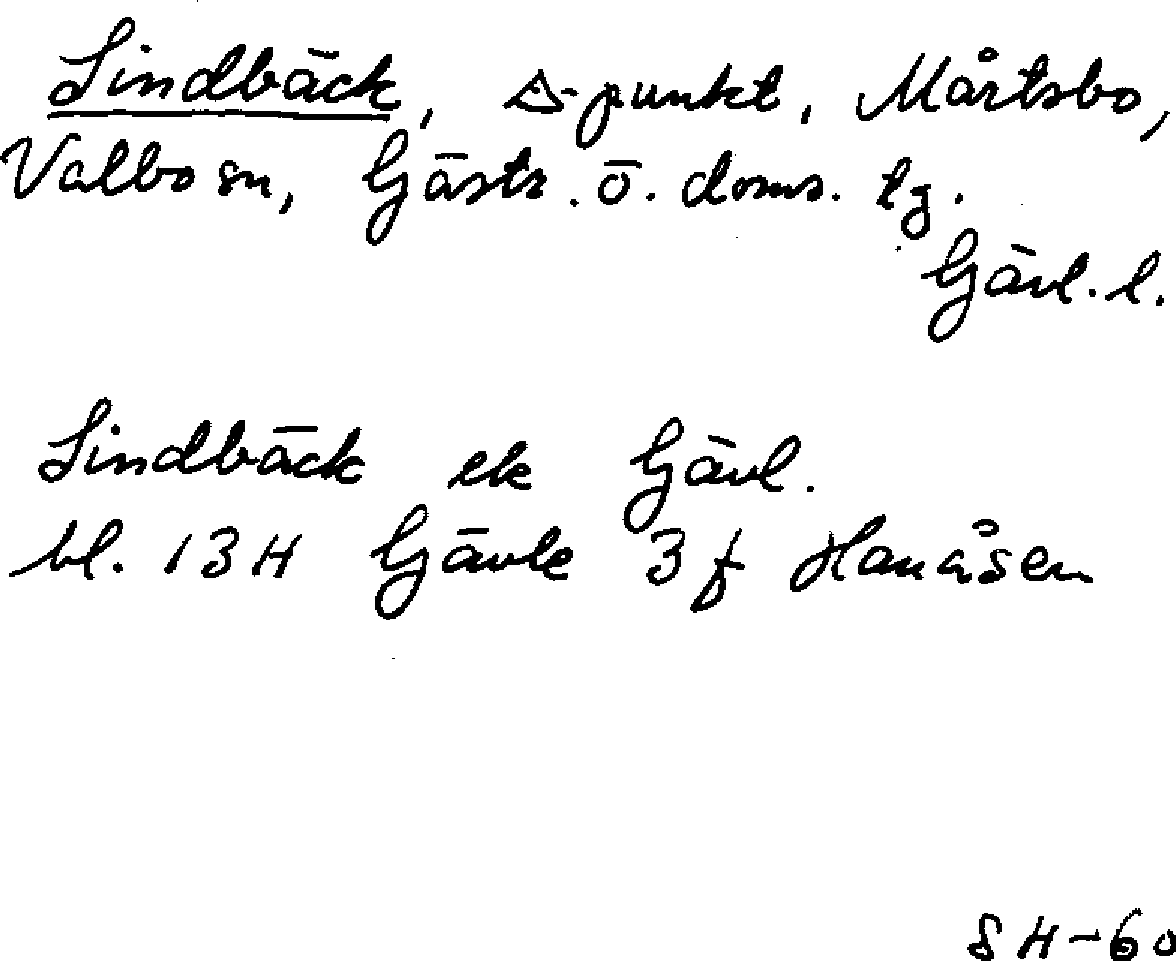 Lindbäck, △-punkt, Mårtsbo,
Valbo sn, Gästr. ö. doms. lg.
Gävl. l.
Lindbäck ek Gävl.
bl. 13H Gävle 3f Hanåsen
SH-60